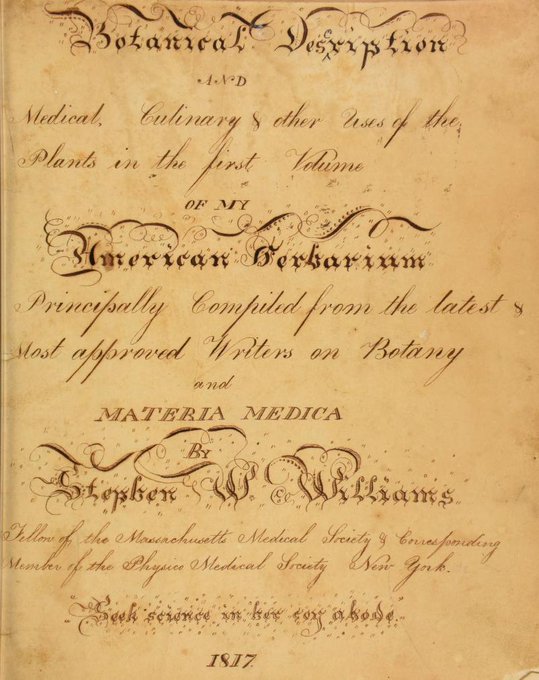 Botanical Description
AND
Medical, Culinary & other Uses of the
Plants in the first Volume
OF MY
American Herbarium
Principally Compiled from the latest &
Most approved Writers on Botany
and
MATERIA MEDICA
By
Stephen W Williams
Fellow of the Massachusetts Medical Society & Corresponding
Member of the Physico Medical Society New York.
"Seek science in her coy abode"
1817